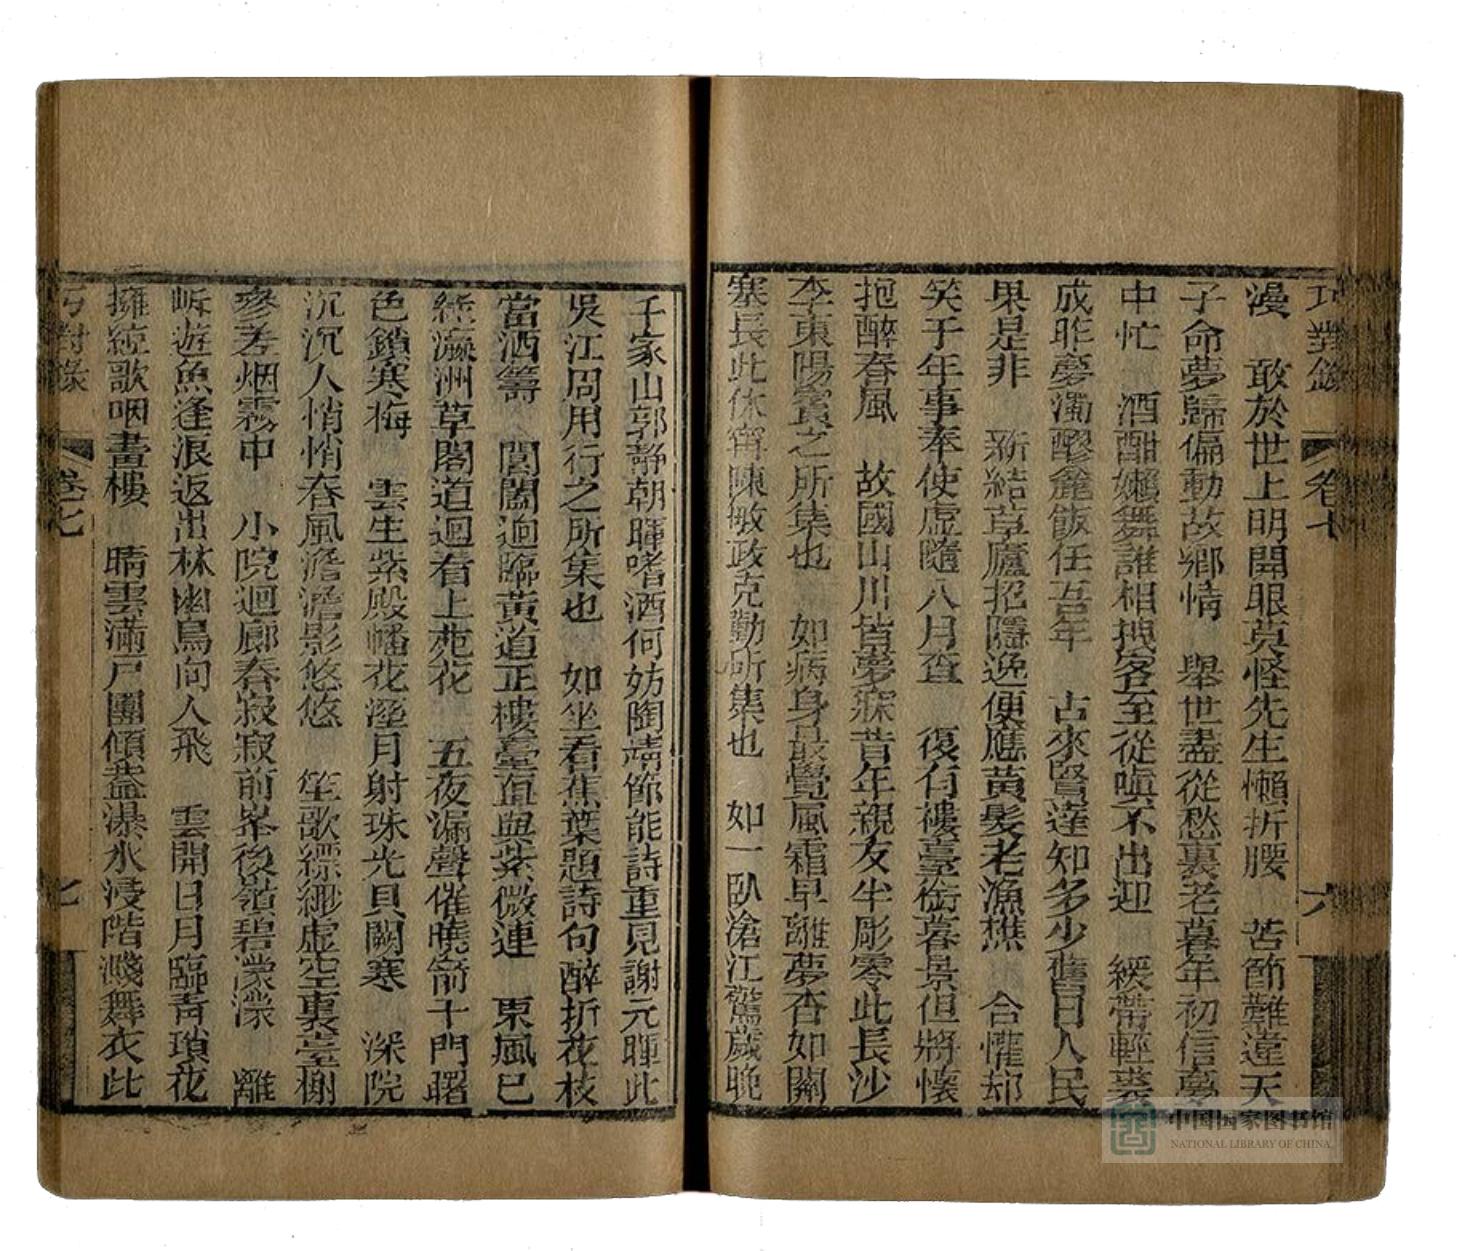 巧對錄 卷七 六
漫 敢於世上明開眼莫怪先生懶折腰 苦節難違天
子命夢歸偏動故鄉情 舉世盡從愁裏老暮年初信夢
中忙 酒酣嬾舞誰相拽客至從嗔不出迎 緩帶輕裘
成昨夢濁醪麄飯任吾年 古來賢達知多少舊日人民
果是非 新結草廬招隱逸便應黃髮老漁樵 合懽却
笑千年事奉使虛隨八月查 復有樓臺銜暮景但將懷
抱醉春風 故國山川皆夢寐昔年親友半彫零此長沙
李東陽賓之所集也 如病身最覺風霜早離夢杳如關
塞長此休甯陳敏政克勤所集也 如一臥滄江驚歲晚
千家山郭靜朝暉嗜酒何妨陶靖節能詩重見謝元暉此
吳江周用行之所集也 如坐看蕉葉題詩句醉折花枝
當酒籌 閶闔迥臨黃道正樓臺直與紫微連 東風已
綠瀛洲草閣道迴看上苑花 五夜漏聲催曉箭千門曙
色鎖寒梅 雲生紫殿幡花溼月射珠光貝闕寒 深院
沉沉人悄悄春風澹澹影悠悠 笙歌縹緲虛空裏臺榭
參差烟霧中 小院迴廊春寂寂前峯後嶺碧濛濛 離
岸遊魚逢浪返出林幽鳥向人飛 雲開日月臨青瑣花
擁絃歌咽畫樓 晴雲滿戸團傾蓋瀑水浸階濺舞衣此
巧對錄 卷七 七
中国国家图书馆
NATIONAL LIBRARY OF CHINA